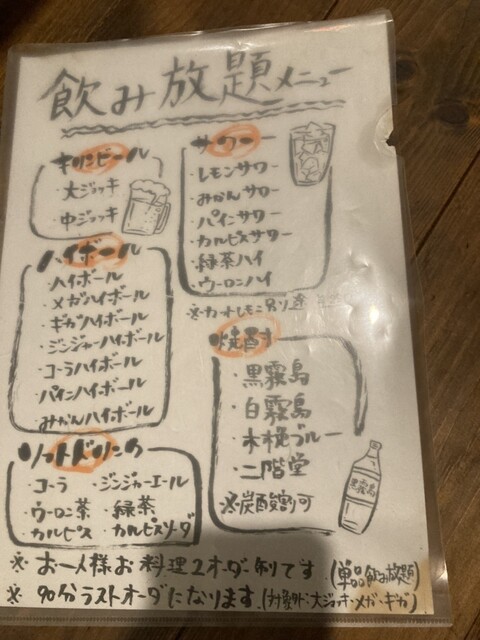 飲み放題メニュー
キリンビール
・大ジョッキ
・中ジョッキ
ハイボール
・ハイボール
・メガハイボール
・ギガハイボール
・ジンジャーハイボール
・コーラハイボール
・パインハイボール
・みかんハイボール
ソフトドリンク
・コーラ ・ジンジャーエール
・ウーロン茶 ・緑茶
・カルピス ・カルピスソーダ
サワー
・レモンサワー
・みかんサワー
・パインサワー
・カルピスサワー
・緑茶ハイ
・ウーロンハイ
※カットレモン別途
焼酎
・黒霧島
・白霧島
・木挽ブルー
・二階堂
※炭酸割可
黒霧島
※お一人様お料理2オーダー制です(単品飲み放題)
※90分ラストオーダになります(対象外・大ジョッキ・メガ・ギガ)